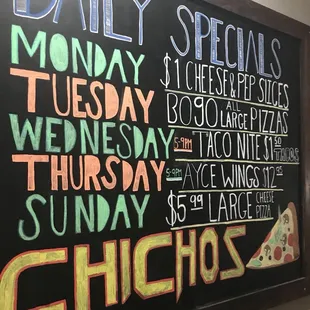 DAILY SPECIALS
MONDAY $1 CHEESE & PEP SLICES
TUESDAY BOGO ALL LARGE PIZZAS
WEDNESDAY 5-9PM TACO NITE $1
THURSDAY 5-9PM AYCE WINGS $12.95
SUNDAY $5.99 LARGE CHEESE PIZZA
CHICHOS